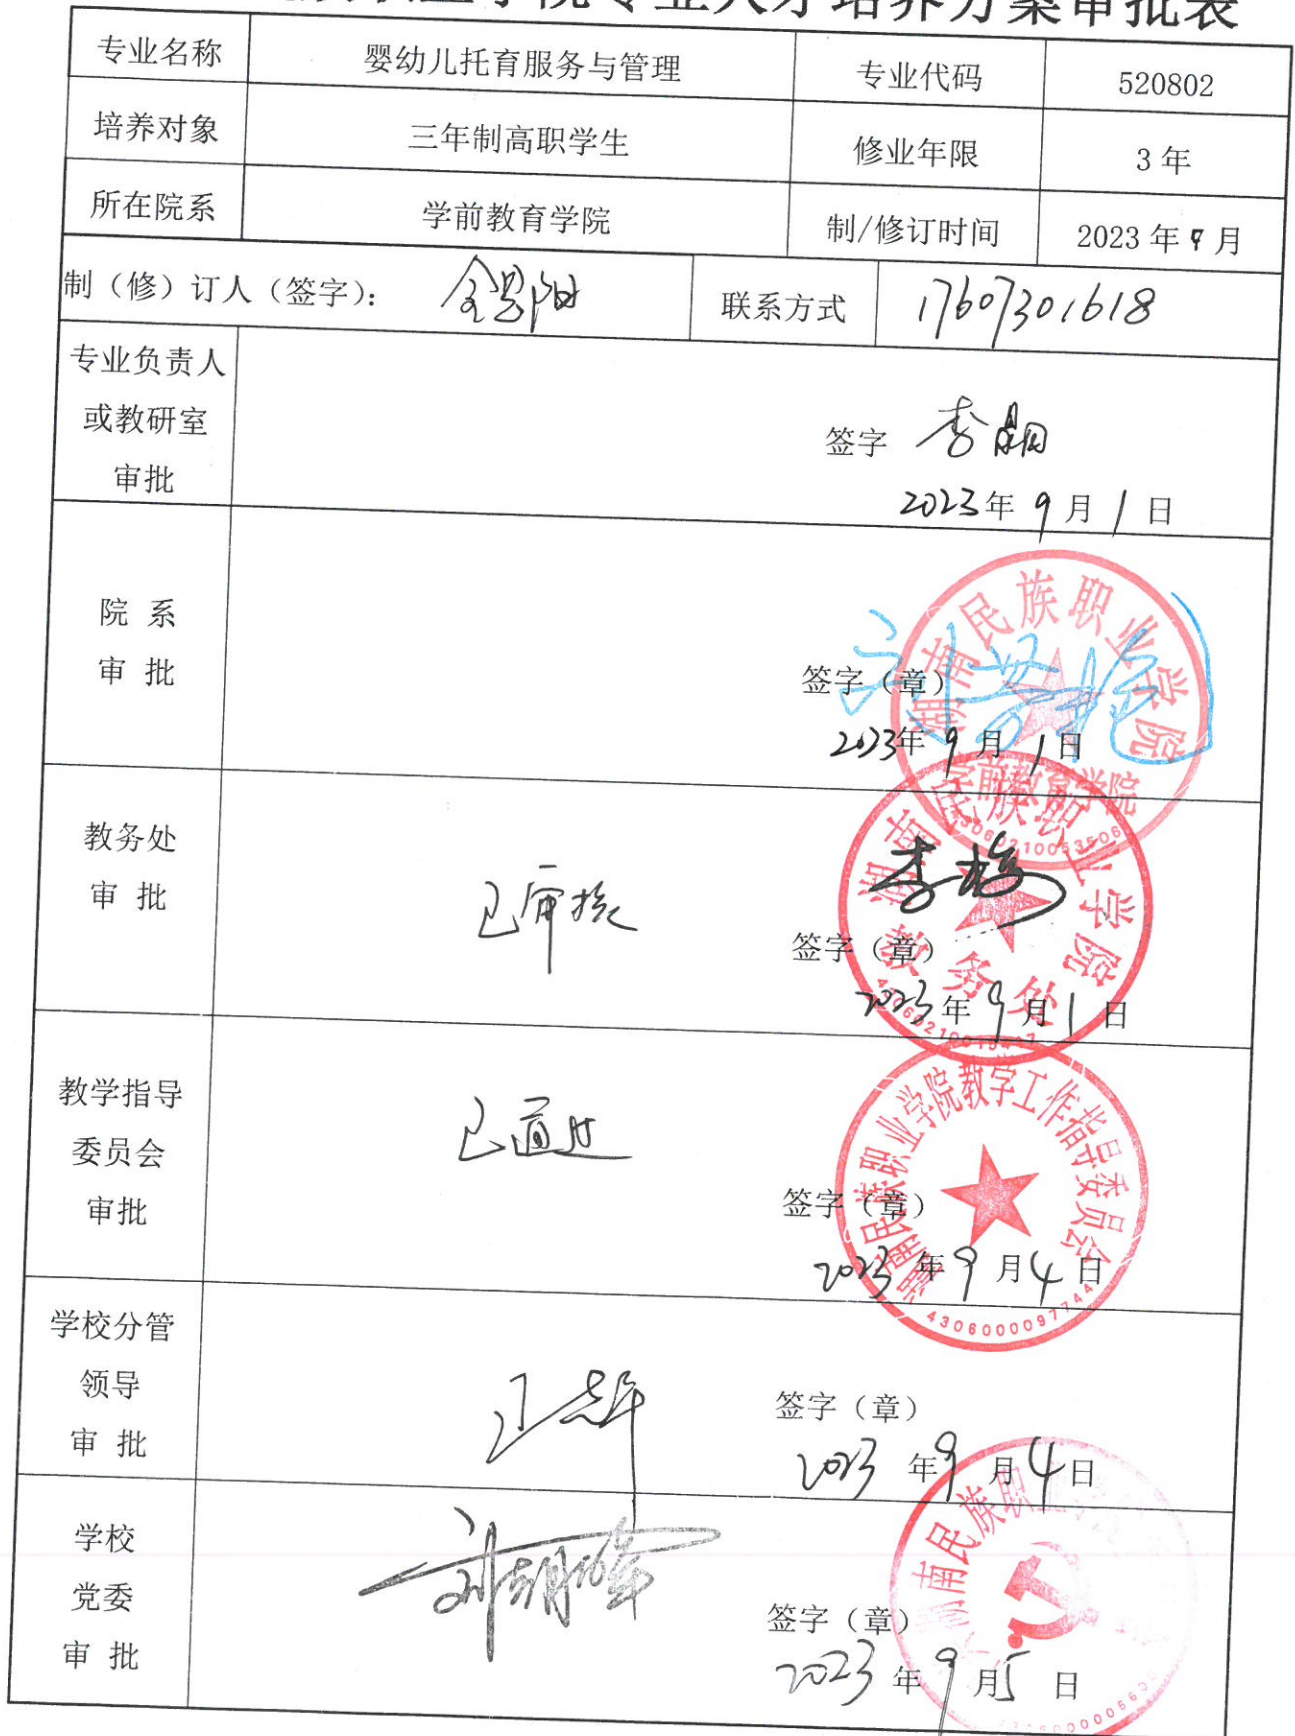 学院专业人才培养方案审批表
专业名称 婴幼儿托育服务与管理 专业代码 520802
培养对象 三年制高职学生 修业年限 3年
所在院系 学前教育学院 制/修订时间 2023年9月
制（修）订人（签字）： 联系方式 17607301618
专业负责人
或教研室
审批
签字
2023年9月1日
院 系
审 批
签字（章）
2023年9月1日
湖南民族职业学院
学前教育学院
教务处
审 批
已审核
李梅
签字（章）
2023年9月1日
湖南民族职业学院
教务处
教学指导
委员会
审批
已通过
签字（章）
2023年9月4日
湖南民族职业学院教学工作指导委员会
4306000097744
学校分管
领导
审 批
签字（章）
2023年9月4日
学校
党委
审 批
签字（章）
2023年9月5日
南民族职